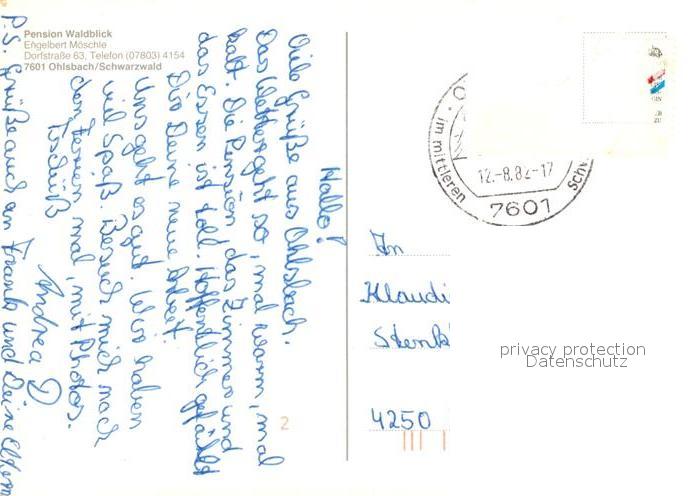 Pension Waldblick
Engelbert Möschle
Dorfstraße 63, Telefon (07803) 4154
7601 Ohlsbach/Schwarzwald
Hallo!
Viele Grüße aus Ohlsbach.
Das Wetter geht so, mal warm, mal
kalt. Die Pension, das Zimmer und
das Essen ist toll. Hoffentlich gefällt
Dir Deine neue Arbeit.
Uns geht es gut. Wir haben
viel Spaß. Besuch mich nach
den Ferien mal, mit Photos.
Tschüß
Andrea
P.S. Grüße auch an Frank und Deine Eltern
2
im mittleren
12.-8.82-17
7601
Schw
An
Klaudi
Stenk
4250
privacy protection
Datenschutz